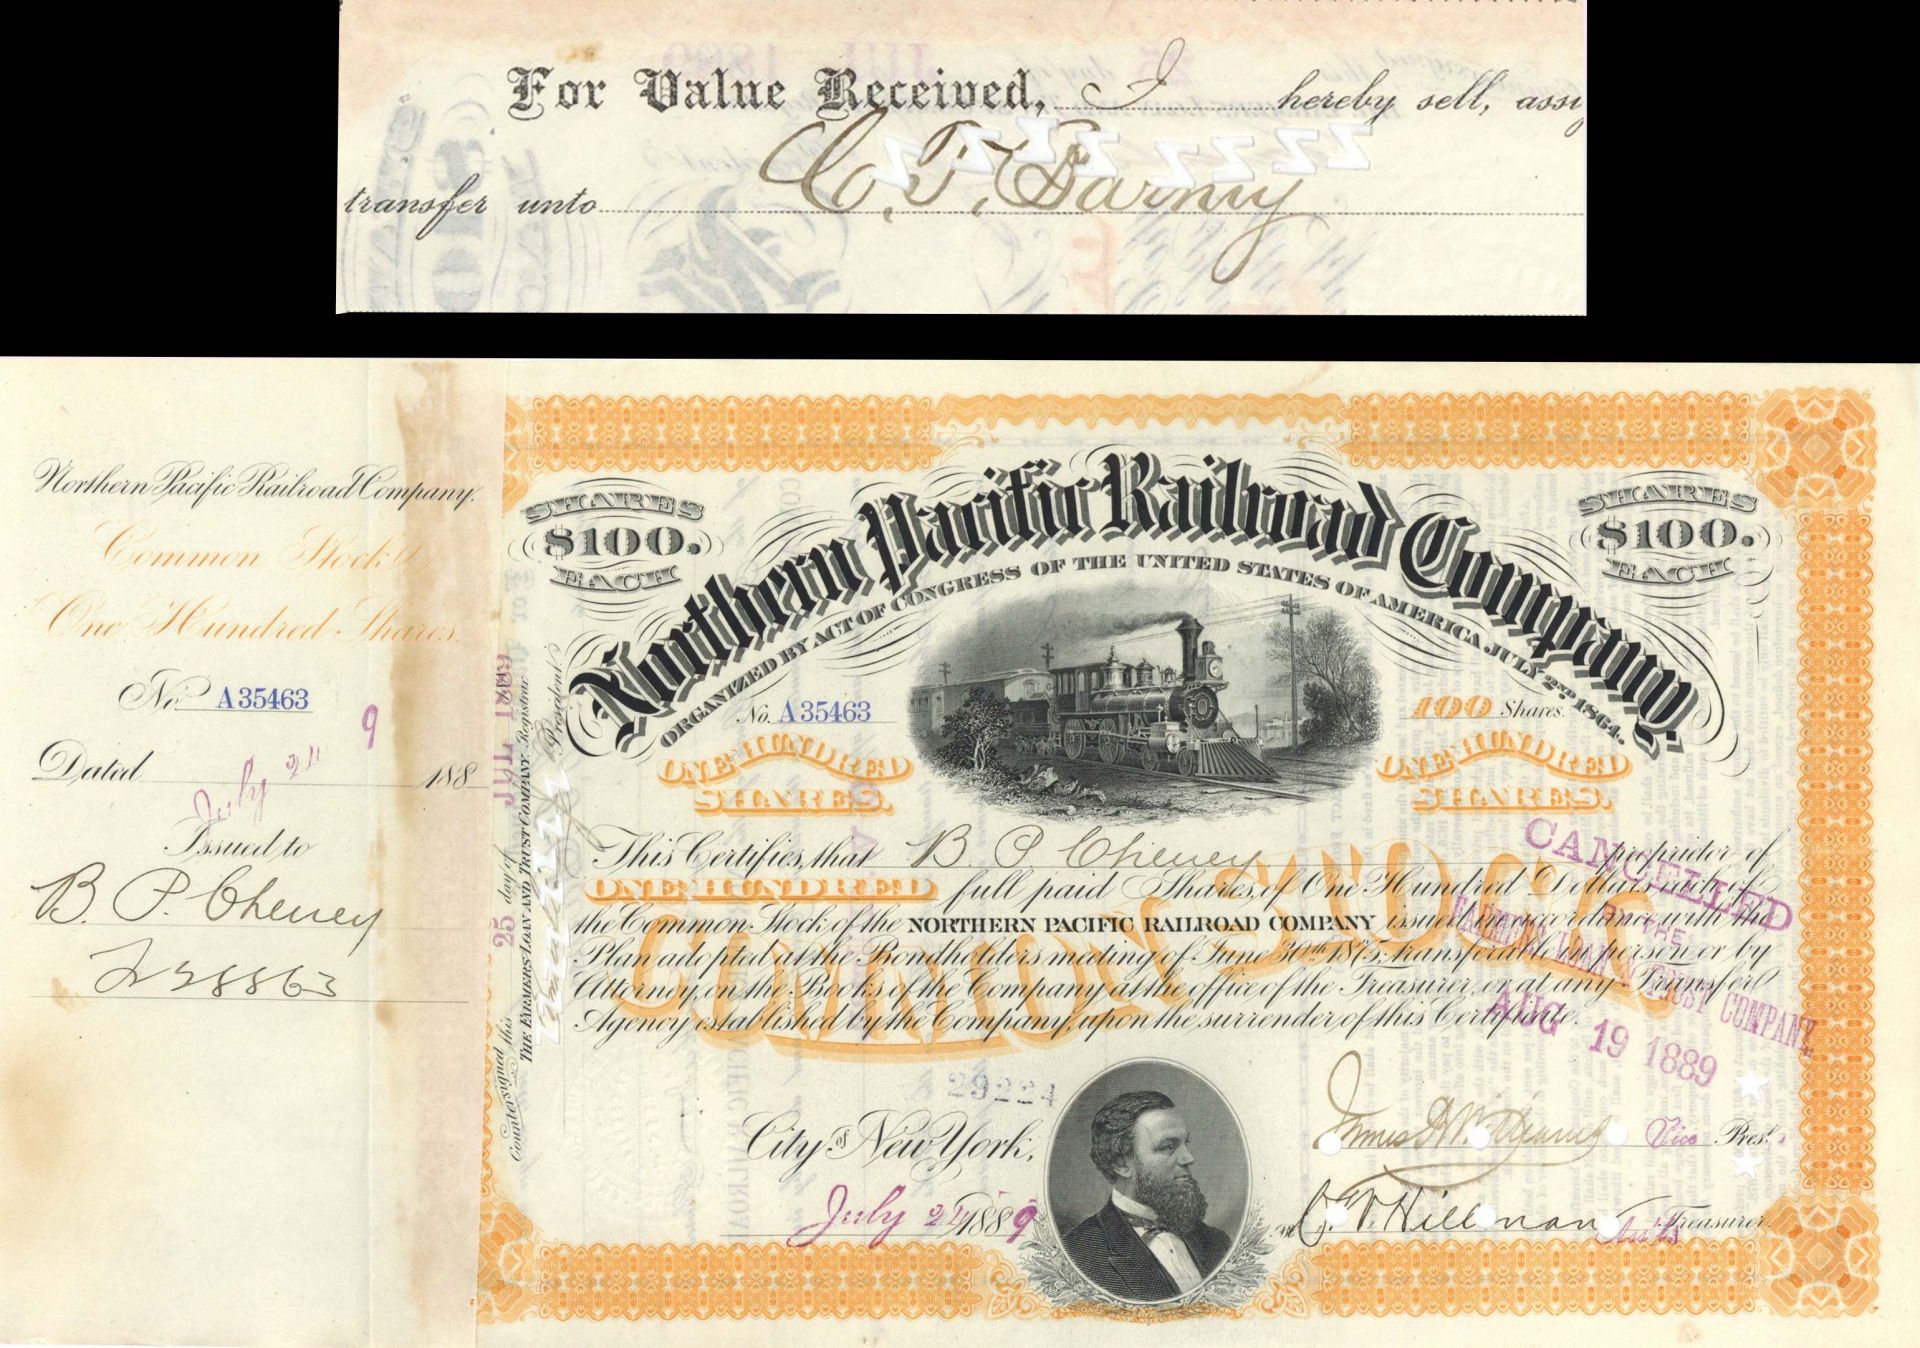 For Value Received, I hereby sell, assi
transfer unto C. T. Barney
Northern Pacific Railroad Company.
Common Stock
One Hundred Shares.
No. A35463
Dated July 24 1889
Issued to
B. P. Cheney
SHARES
$100.
EACH
SHARES
$100.
EACH
Northern Pacific Railroad Company.
ORGANIZED BY ACT OF CONGRESS OF THE UNITED STATES OF AMERICA, JULY 2ND 1864.
No. A35463
100 Shares.
ONE HUNDRED
SHARES.
ONE HUNDRED
SHARES.
This Certifies, that B. P. Cheney proprietor of
ONE HUNDRED full paid Shares, of One Hundred Dollars each of
the Common Stock of the NORTHERN PACIFIC RAILROAD COMPANY issued in accordance with the
Plan adopted at the Bondholders meeting of June 30th 1875, transferable in person or by
Attorney, on the Books of the Company at the office of the Treasurer, or at any Transfer
Agency established by the Company, upon the surrender of this Certificate.
COMMON STOCK
CANCELLED
THE
FARMERS LOAN & TRUST COMPANY.
AUG 19 1889
29224
City of New York,
July 24 1889
Vice Prest.
Treasurer.
Countersigned this 25 day of JUL 1889
THE FARMERS LOAN AND TRUST COMPANY. Registrar.
President.